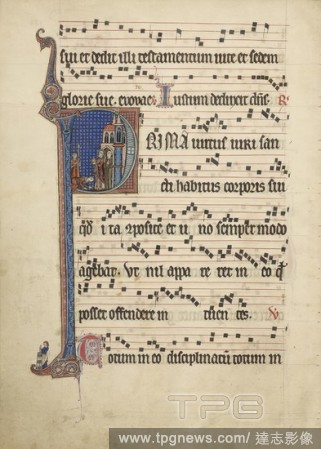 sui et dedit illi testamentum vite et sedem
glorie sue. evovae. Iustum deduxit dn̄s. R
PRIMA virtus viri san
cti habitus corporis sui
ita 2posite et u no semper modo
agebat. Vt nil appa re ret in eo q̄
posset offendere in tuen tes. V
Totum in eo disciplinatū totum in
TPG
www.tpgnews.com/達志影像